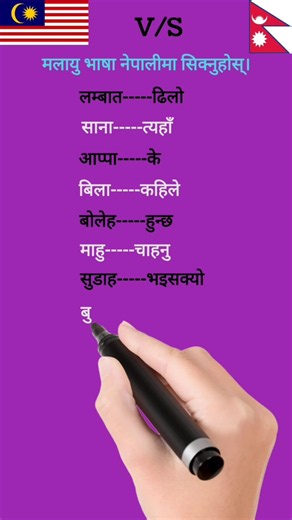 V/S
मलायु भाषा नेपालीमा सिक्नुहोस्।
लम्बात-----ढिलो
साना-----त्यहाँ
आप्पा-----के
बिला-----कहिले
बोलेह-----हुन्छ
माहु-----चाहनु
सुडाह-----भइसक्यो
बु